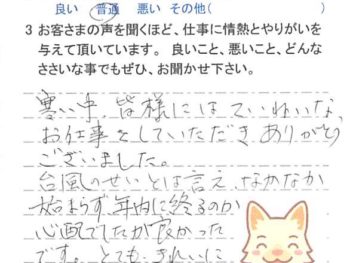 良い 普通 悪い その他( )
3 お客さまの声を聞くほど、仕事に情熱とやりがいを
与えて頂いています。 良いこと、悪いこと、どんな
ささいな事でもぜひ、お聞かせ下さい。
寒い中 皆様には ていねいな、
お仕事をしていただき ありがとう
ございました。
台風のせいとは言え、なかなか
始まらず、年内に終るのか
心配でしたが良かった
です。とても きれいに